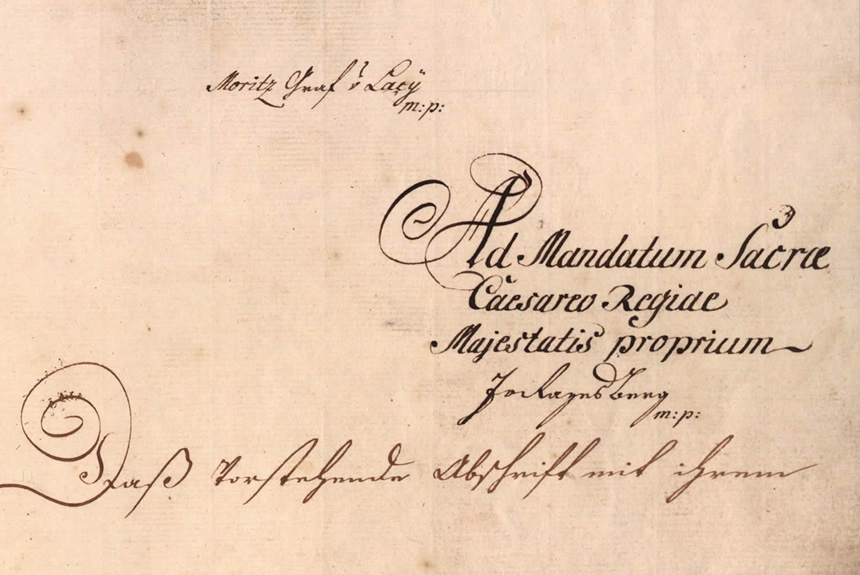 Moritz Graf v Lacÿ
m:p:
Ad Mandatum Sacræ
Caesareo Regiae
Majestatis proprium
m:p:
Daß vorstehende Abschrift mit ihrem